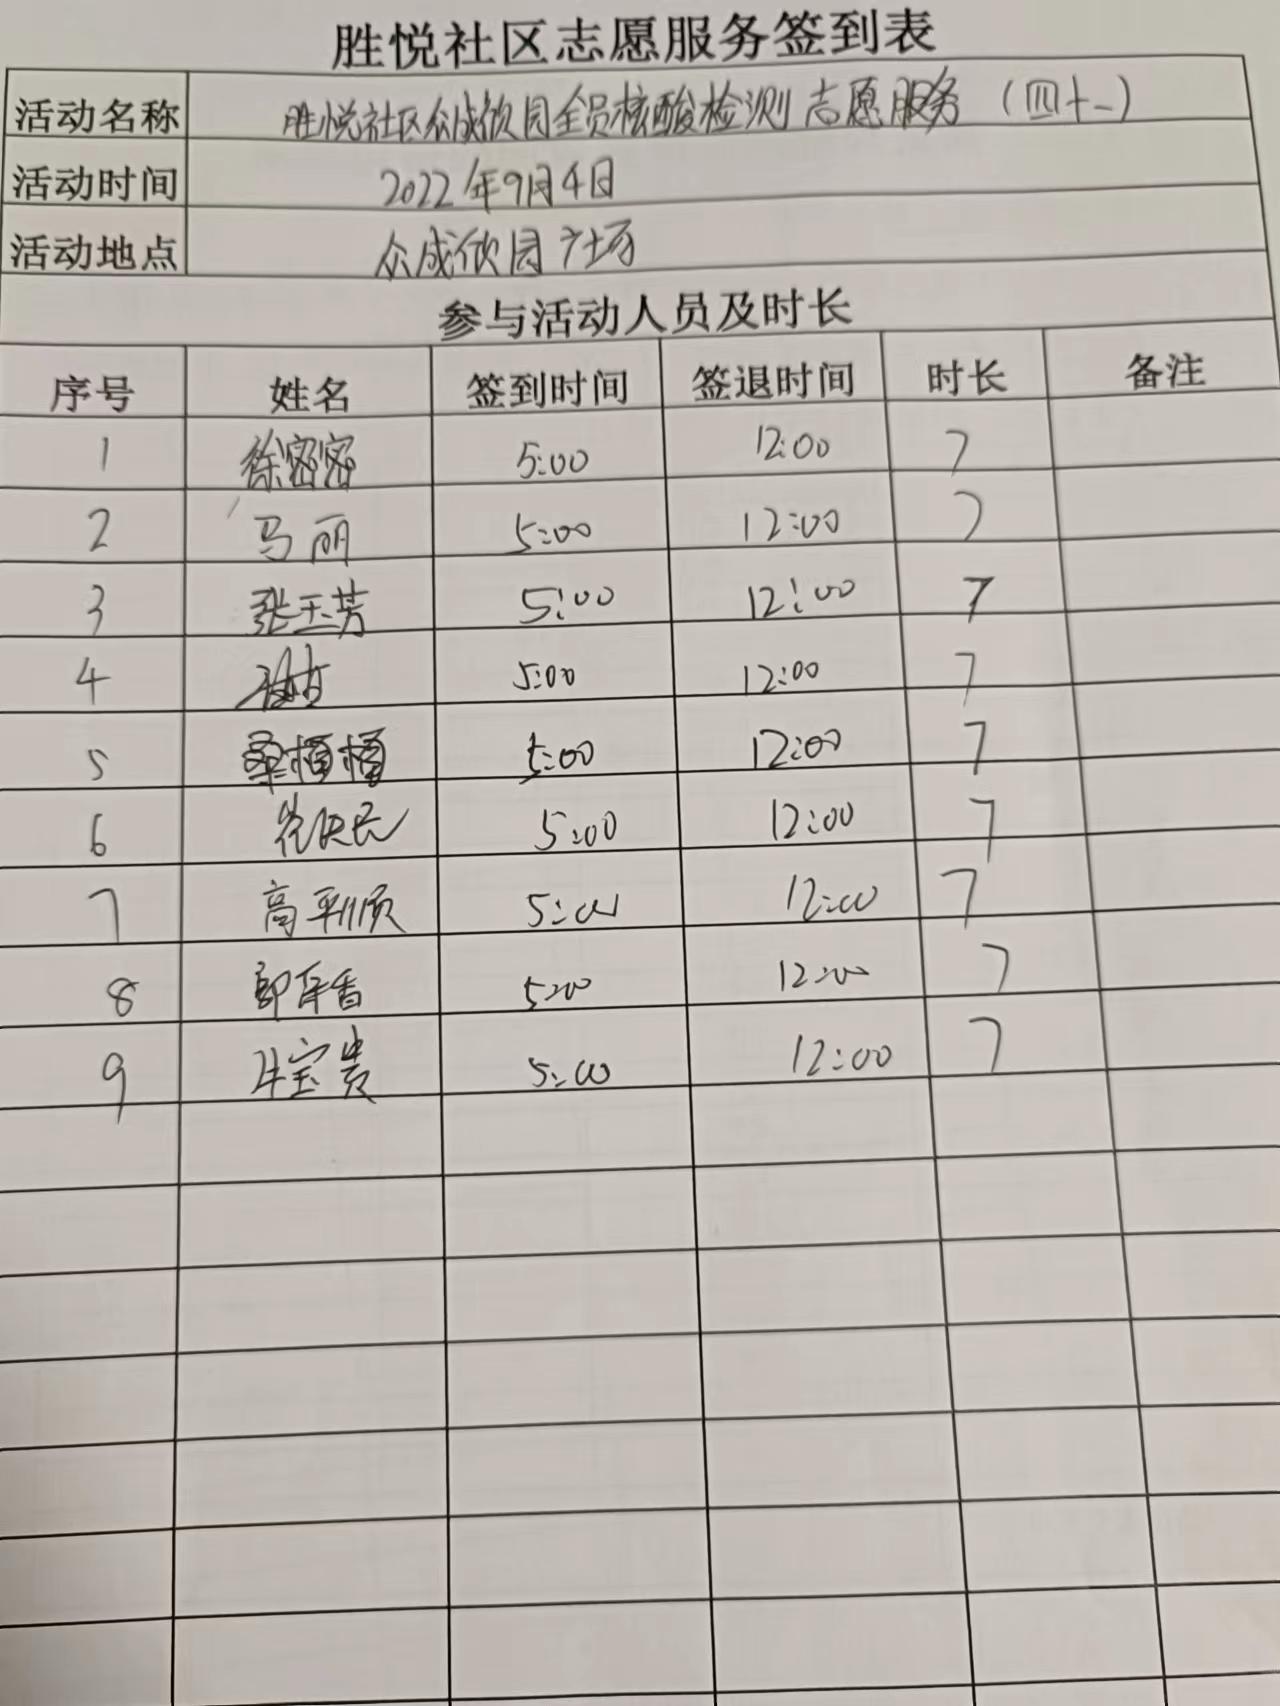 胜悦社区志愿服务签到表
活动名称 胜悦社区众成欣园全员核酸检测志愿服务（四十一）
活动时间 2022年9月4日
活动地点 众成欣园广场
参与活动人员及时长
序号 姓名 签到时间 签退时间 时长 备注
1 徐密密 5:00 12:00 7
2 马丽 5:00 12:00 7
3 张玉芳 5:00 12:00 7
4 5:00 12:00 7
5 5:00 12:00 7
6 5:00 12:00 7
7 高利顺 5:00 12:00 7
8 5:00 12:00 7
9 牛宝贵 5:00 12:00 7